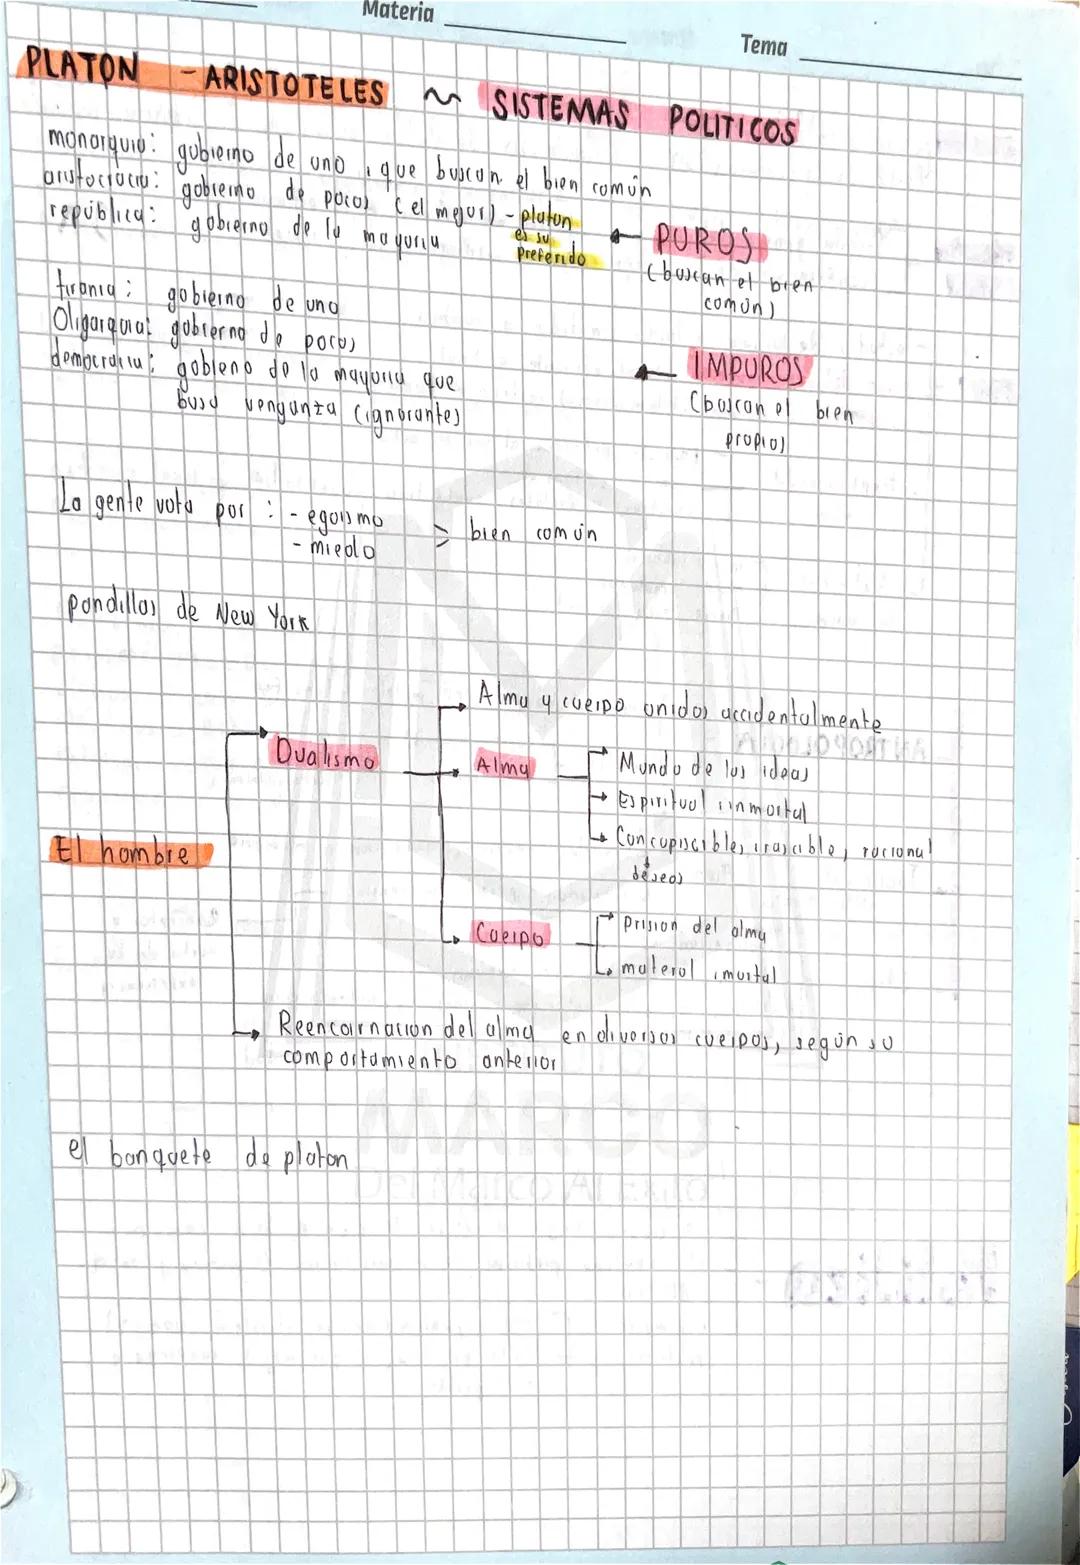 Materia
Tema
PLATON - ARISTOTELES ~ SISTEMAS POLITICOS
monarquia: gobierno de uno, que buscan el bien común
aristocracia: gobierno de pocos (el mejor) - platon es su preferido
república: gobierno de la mayoria
← PUROS
(buscan el bien
común)
tirania: gobierno de uno
Oligarquia: gobierno de pocos
democracia: gobieno de la mayoria que
busca venganza (ignorantes)
← IMPUROS
(buscan el bien
propio)
La gente vota por: - egoismo
- miedo
> bien común
pandillas de New York
El hombre
Dualismo
Alma y cuerpo unidos accidentalmente
Alma
Mundo de las ideas
Espiritual, inmortal
Concupiscibles, irascible, racional
deseos
Cuerpo
prision del alma
material, mortal
Reencarnacion del alma en diversos cuerpos, según su
comportamiento anterior
el banquete de platon
MARCO
Del Marco Al Exito